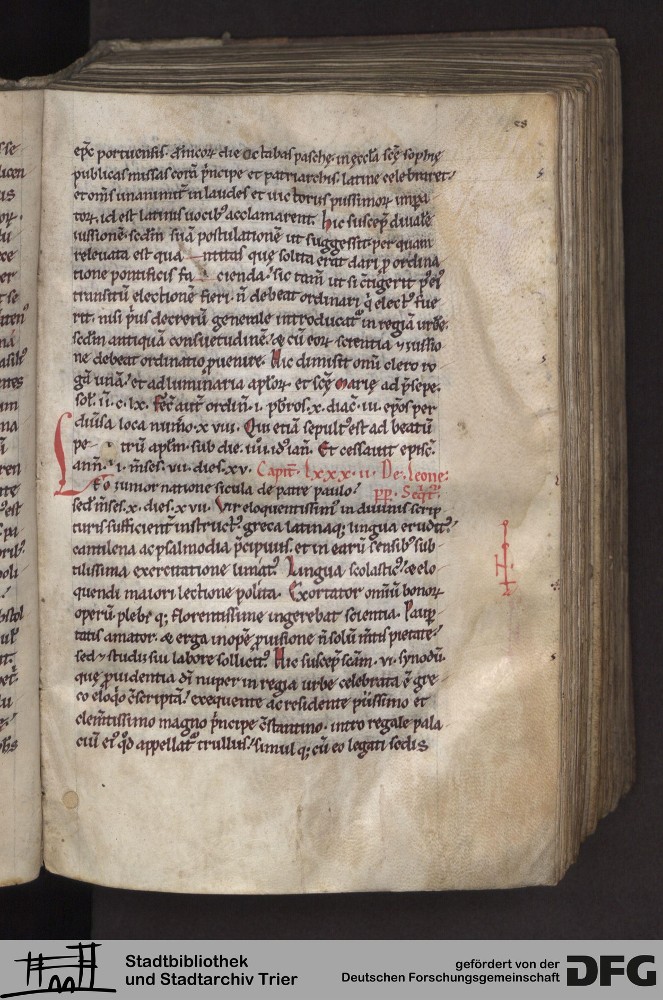 68
epc portuensis. dnicor die octabas pasche. in eccla sce sophie
publicas missas cora principe et patriarchis. latine celebraret.
et oms unanimit in laudes et uictorus piissimor impa
tor. id est latinis uocib acclamarent. Hic suscep diuale
iussione. sedm sua postulatione ut suggessit. per quam
releuata est qua ntitas que solita erat dari. p ordina
tione pontificis fa cienda. sic tam ut si ctigerit p ei
transitu electione fieri. n debeat ordinari q elect fue
rit. nisi prius decretu generale introducat in regia urbe.
sedm antiqua consuetudine. & cu eor scientia & iussio
ne debeat ordinatio puenire. Hic dimisit omi clero ro
ga una. et ad luminaria aplor. et sce marie ad psepe.
sol. ii. c. lx. Fec aut ordin. i. pbros. x. diac. iii. epos per
diuersa loca numo. x viii. Qui etia sepult est ad beatu
pe tru aplm. sub die. iiii. id ian. Et cessauit episc.
ann. i. mses. vii. dies. xv. Capit. lxxx. ii. De leone.
Leo iunior natione sicula de patre paulo. pp. Scdo.
sed. mses. x. dies. x vii. Vir eloquentissim in diuinis scrip
turis sufficient instruct. greca latinaq; lingua erudit.
cantilena ac psalmodia pcipuus. et in earu sensib sub
tilissima exercitatione limat. Lingua scolastic. & elo
quendi maiori lectione polita. Exortator omniu bonor
operu plebi q; florentissime ingerebat scientia. Paup
tatis amator. & erga inope puisione n solu mtis pietate.
sed & studii sui labore sollicit. Hic suscep scam. vi. synodu.
que puidentia di nuper in regia urbe celebrata e gre
co eloqo cscripta. exequente ac residente piissimo et
clemtissimo magno pncipe cstantino. intro regale pala
ciu ei qd appellat trullus. simul q; cu eo legati sedis
Stadtbibliothek
und Stadtarchiv Trier
gefördert von der
Deutschen Forschungsgemeinschaft
DFG